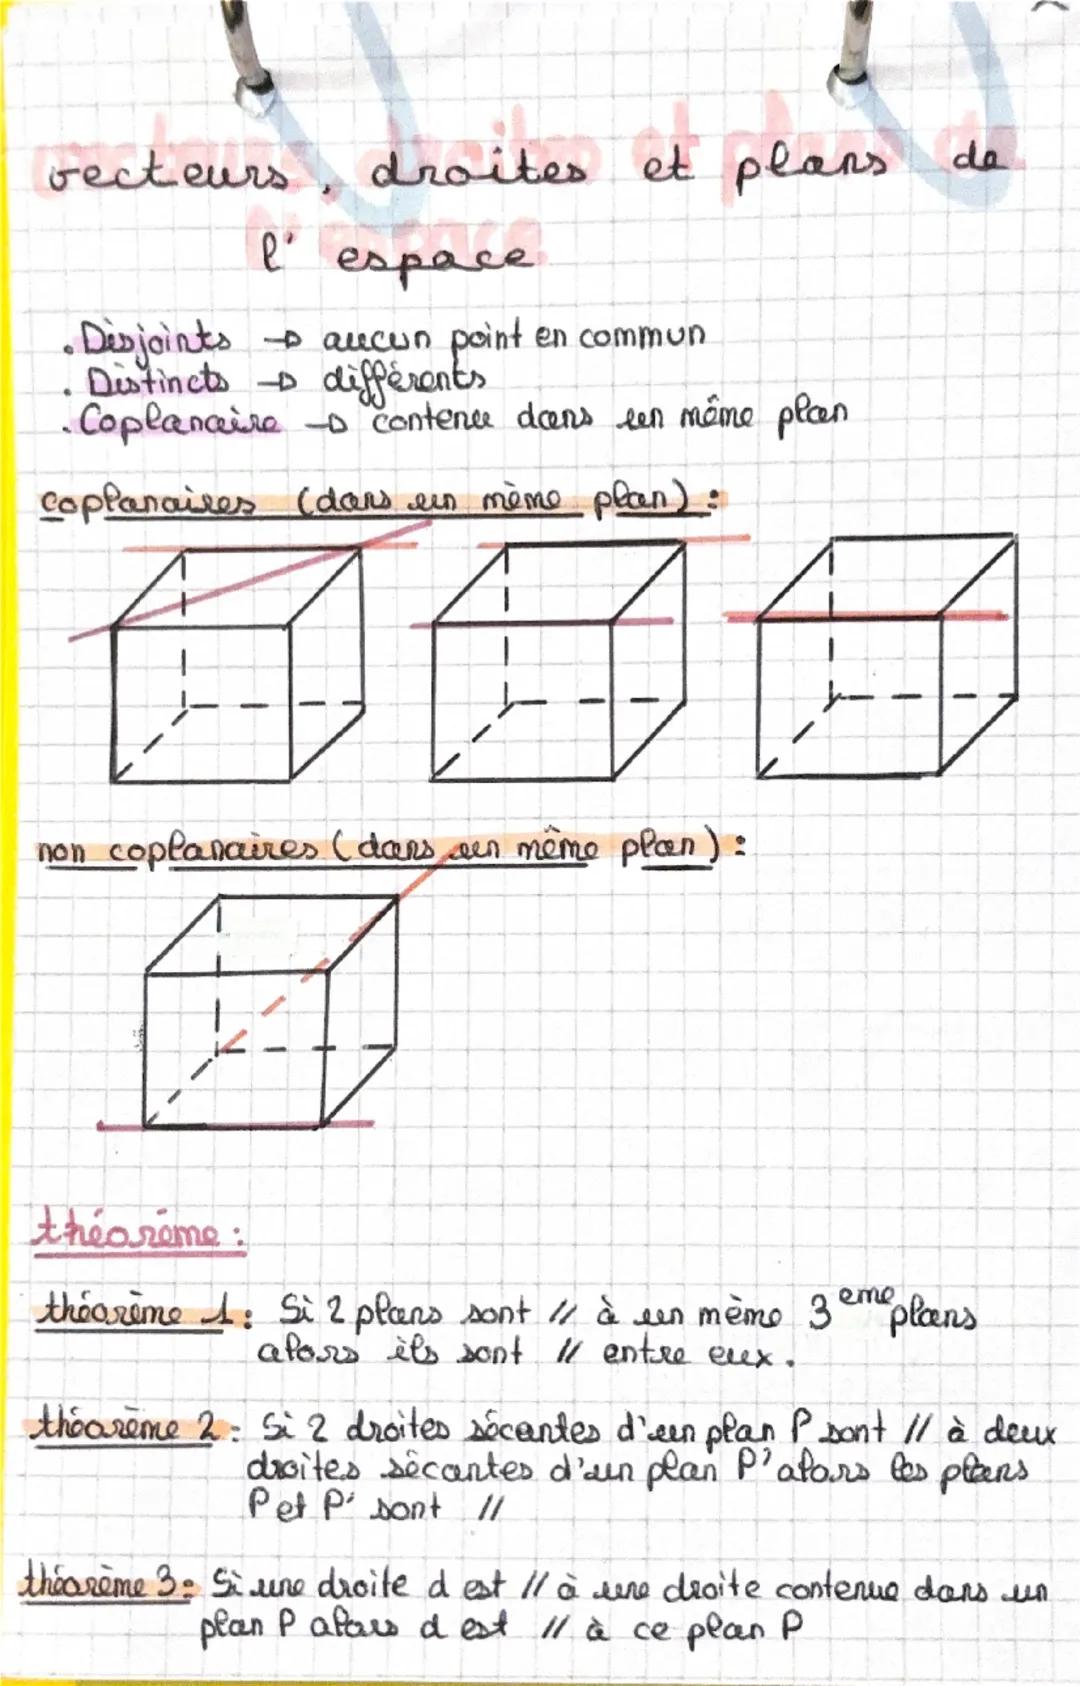 vecteurs, droites et plans de
l'espace
. Disjoints → aucun point en commun
. Distincts → différents
. Coplanaire → contenu dans un même plan
coplanaires (dans un même plan) :
non coplanaires (dans un même plan) :
théorème :
théorème 1 : Si 2 plans sont // à un même 3eme plans
alors ils sont // entre eux.
théorème 2 : Si 2 droites sécantes d'un plan P sont // à deux
droites sécantes d'un plan P' alors les plans
P et P' sont //
théorème 3 : Si une droite d est // à une droite contenue dans un
plan P alors d est // à ce plan P